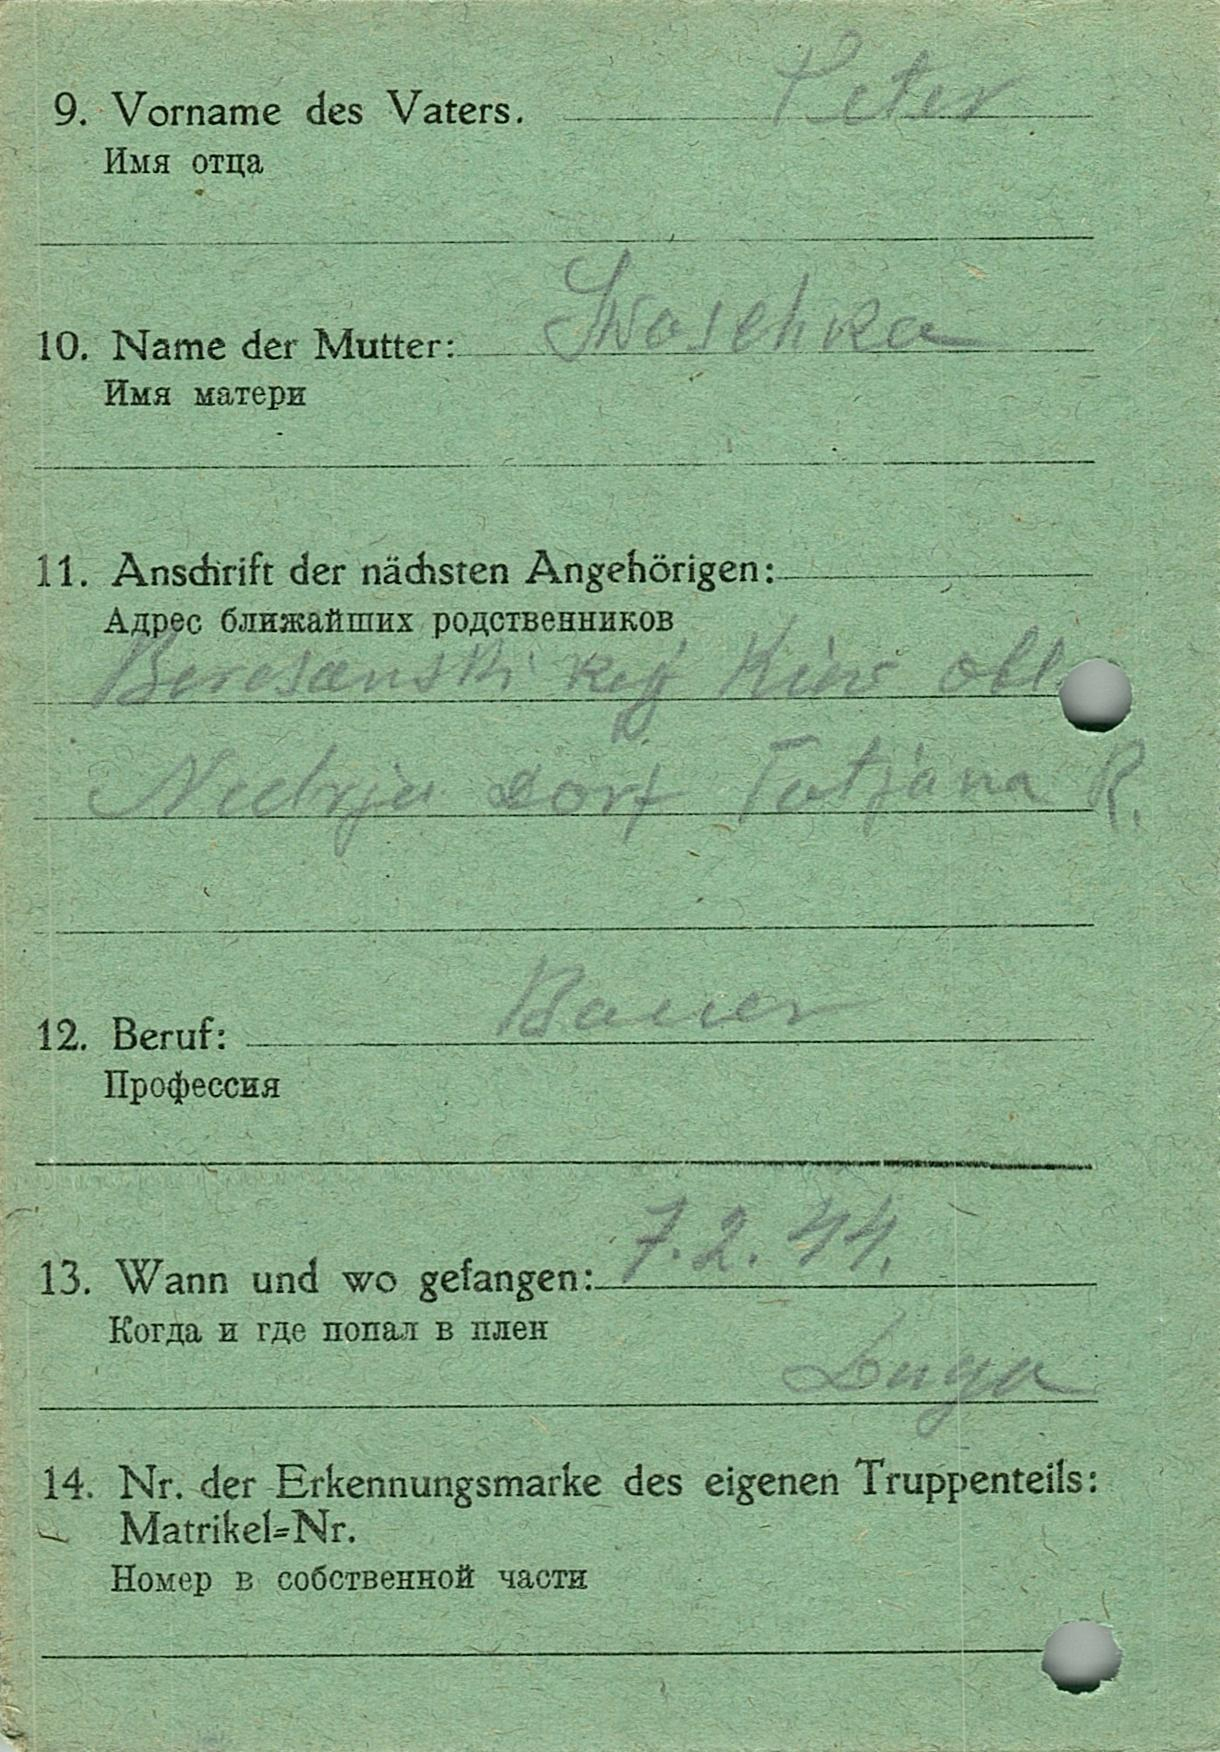 9. Vorname des Vaters. Peter
Имя отца
10. Name der Mutter: Iwaschka
Имя матери
11. Anschrift der nächsten Angehörigen:
Адрес ближайших родственников
Beresanski Kiew obl.
dorf Tatjana R.
12. Beruf: Bauer
Профессия
13. Wann und wo gefangen: 7.2.44.
Когда и где попал в плен
Luga
14. Nr. der Erkennungsmarke des eigenen Truppenteils:
Matrikel=Nr.
Номер в собственной части